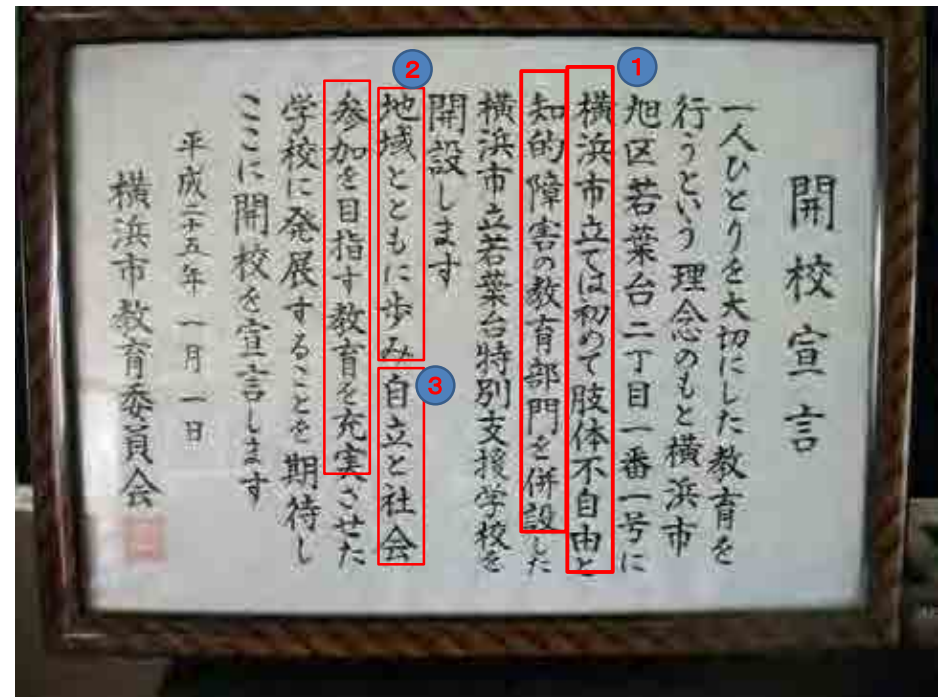 開校宣言
一人ひとりを大切にした教育を
行うという理念のもと横浜市
旭区若葉台二丁目一番一号に
横浜市立では初めて肢体不自由と
知的障害の教育部門を併設した
横浜市立若葉台特別支援学校を
開設します
地域とともに歩み自立と社会
参加を目指す教育を充実させた
学校に発展することを期待し
ここに開校を宣言します
平成二十五年一月一日
横浜市教育委員会
1
2
3